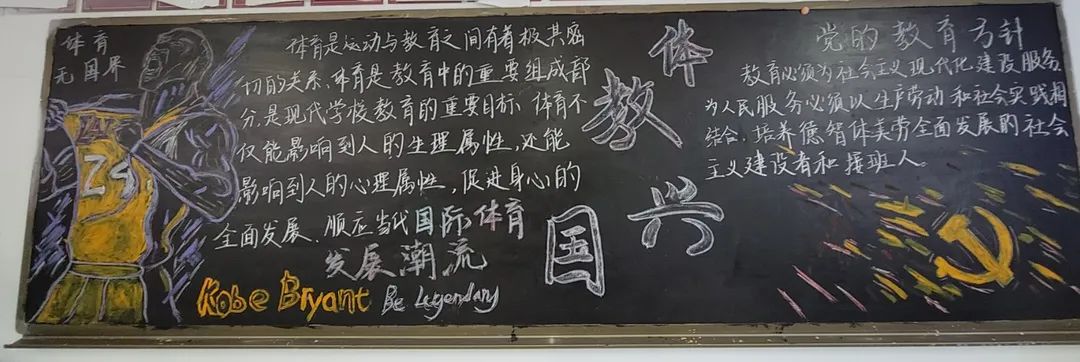 体育
无国界
24
体育是运动与教育之间有着极其密
切的关系、体育是教育中的重要组成部
分,是现代学校教育的重要目标、体育不
仅能影响到人的生理属性,还能
影响到人的心理属性,促进身心的
全面发展、顺应当代国际体育
发展潮流
Kobe Bryant Be Legendary
体
教
兴
国
党的教育方针
教育必须为社会主义现代化建设服务
为人民服务必须以生产劳动和社会实践相
结合、培养德智体美劳全面发展的社会
主义建设者和接班人。